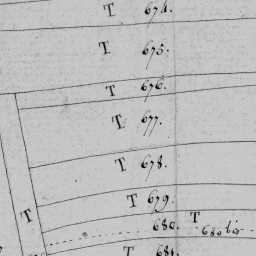 T 674.
T 675.
T 676.
T 677.
T 678.
T 679.
T
680. T 680 bis
T 681.